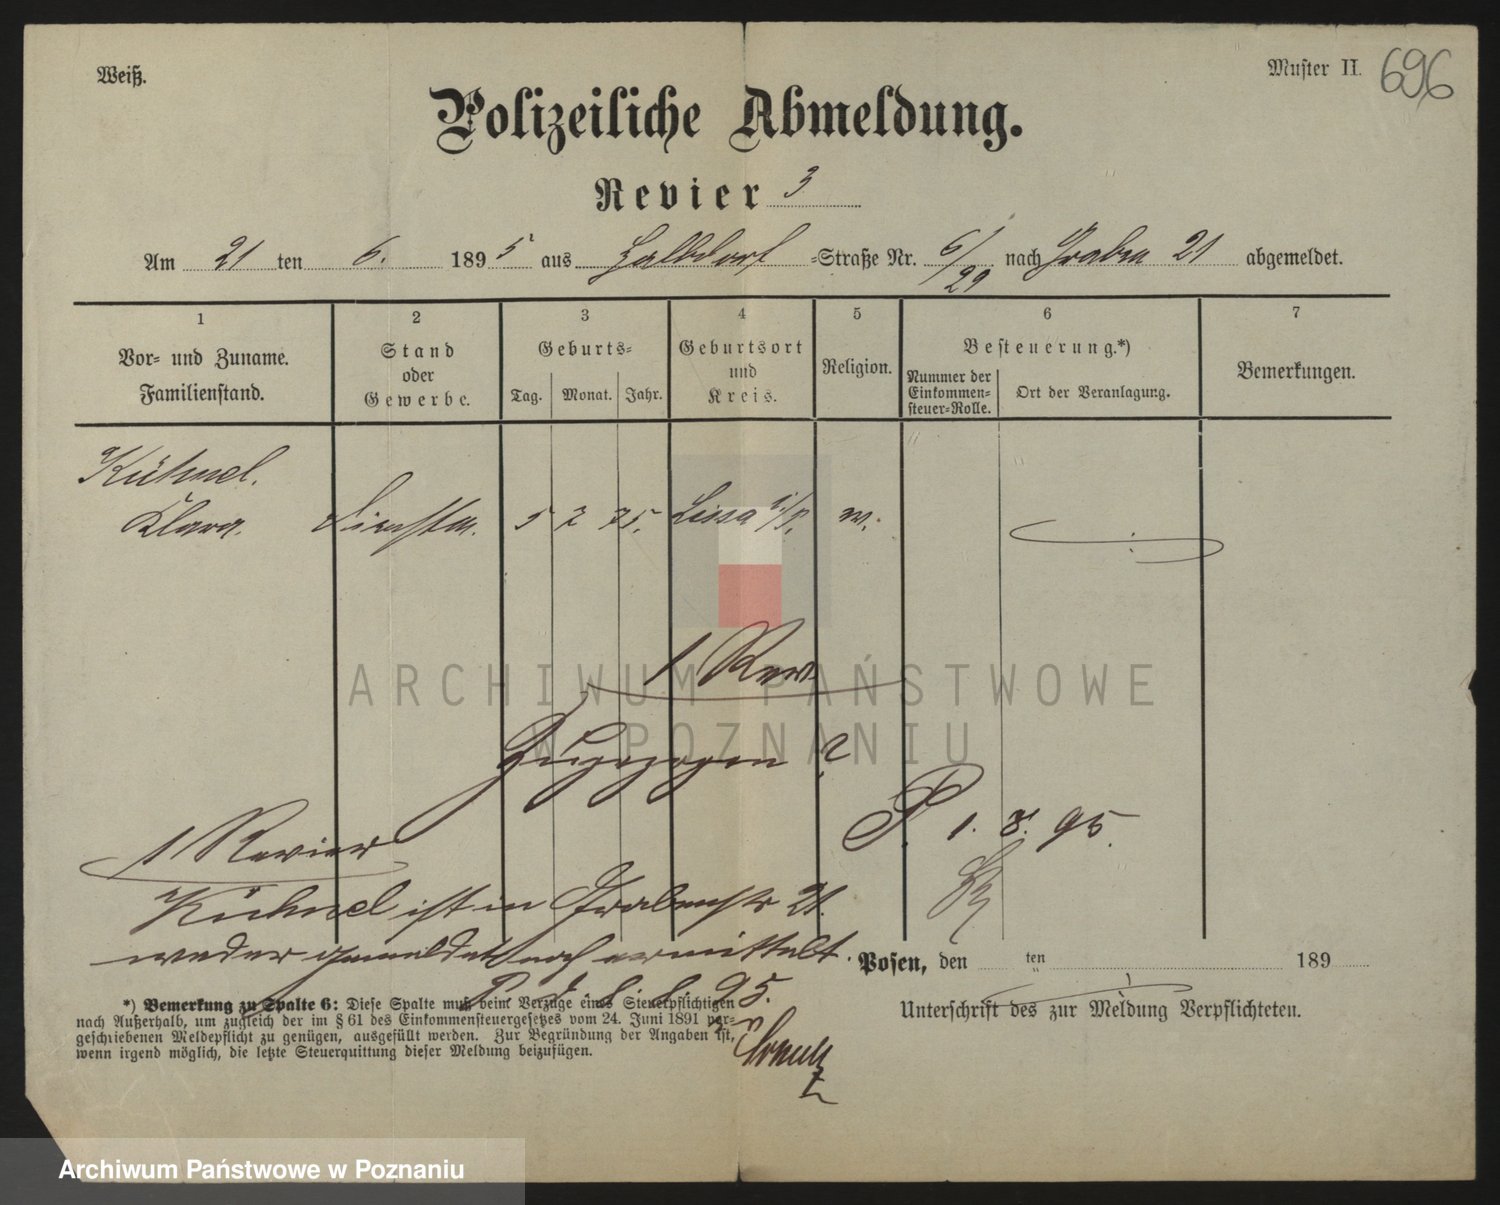 Weiß.
Muster II.
696
Polizeiliche Abmeldung.
Revier 3
Am 21 ten 6. 1895 aus Halbdorf -Straße Nr. 6/29 nach Graben 21 abgemeldet.
1 2 3 4 5 6 7
Vor- und Zuname. Familienstand.
Stand oder Gewerbe.
Geburts-
Tag. Monat. Jahr.
Geburtsort und Kreis.
Religion.
Besteuerung.*)
Nummer der Einkommen-steuer-Rolle.
Ort der Veranlagung.
Bemerkungen.
Kühnel.
Klara. Dienstm. 5 2 75. Lissa i/P.
1 Rev.
Zugezogen ?
P. 1. 8. 95.
1 Revier
Kühnel ist in Grabenstr 21.
weder gemeldet noch ermittelt.
P. d. 8. 8. 95.
Posen, den ten 189
Unterschrift des zur Meldung Verpflichteten.
*) Bemerkung zu Spalte 6: Diese Spalte muß beim Verzuge eines Steuerpflichtigen
nach Außerhalb, um zugleich der im § 61 des Einkommensteuergesetzes vom 24. Juni 1891 vor-
geschriebenen Meldepflicht zu genügen, ausgefüllt werden. Zur Begründung der Angaben ist,
wenn irgend möglich, die letzte Steuerquittung dieser Meldung beizufügen.
ARCHIWUM PAŃSTWOWE
W POZNANIU
Archiwum Państwowe w Poznaniu